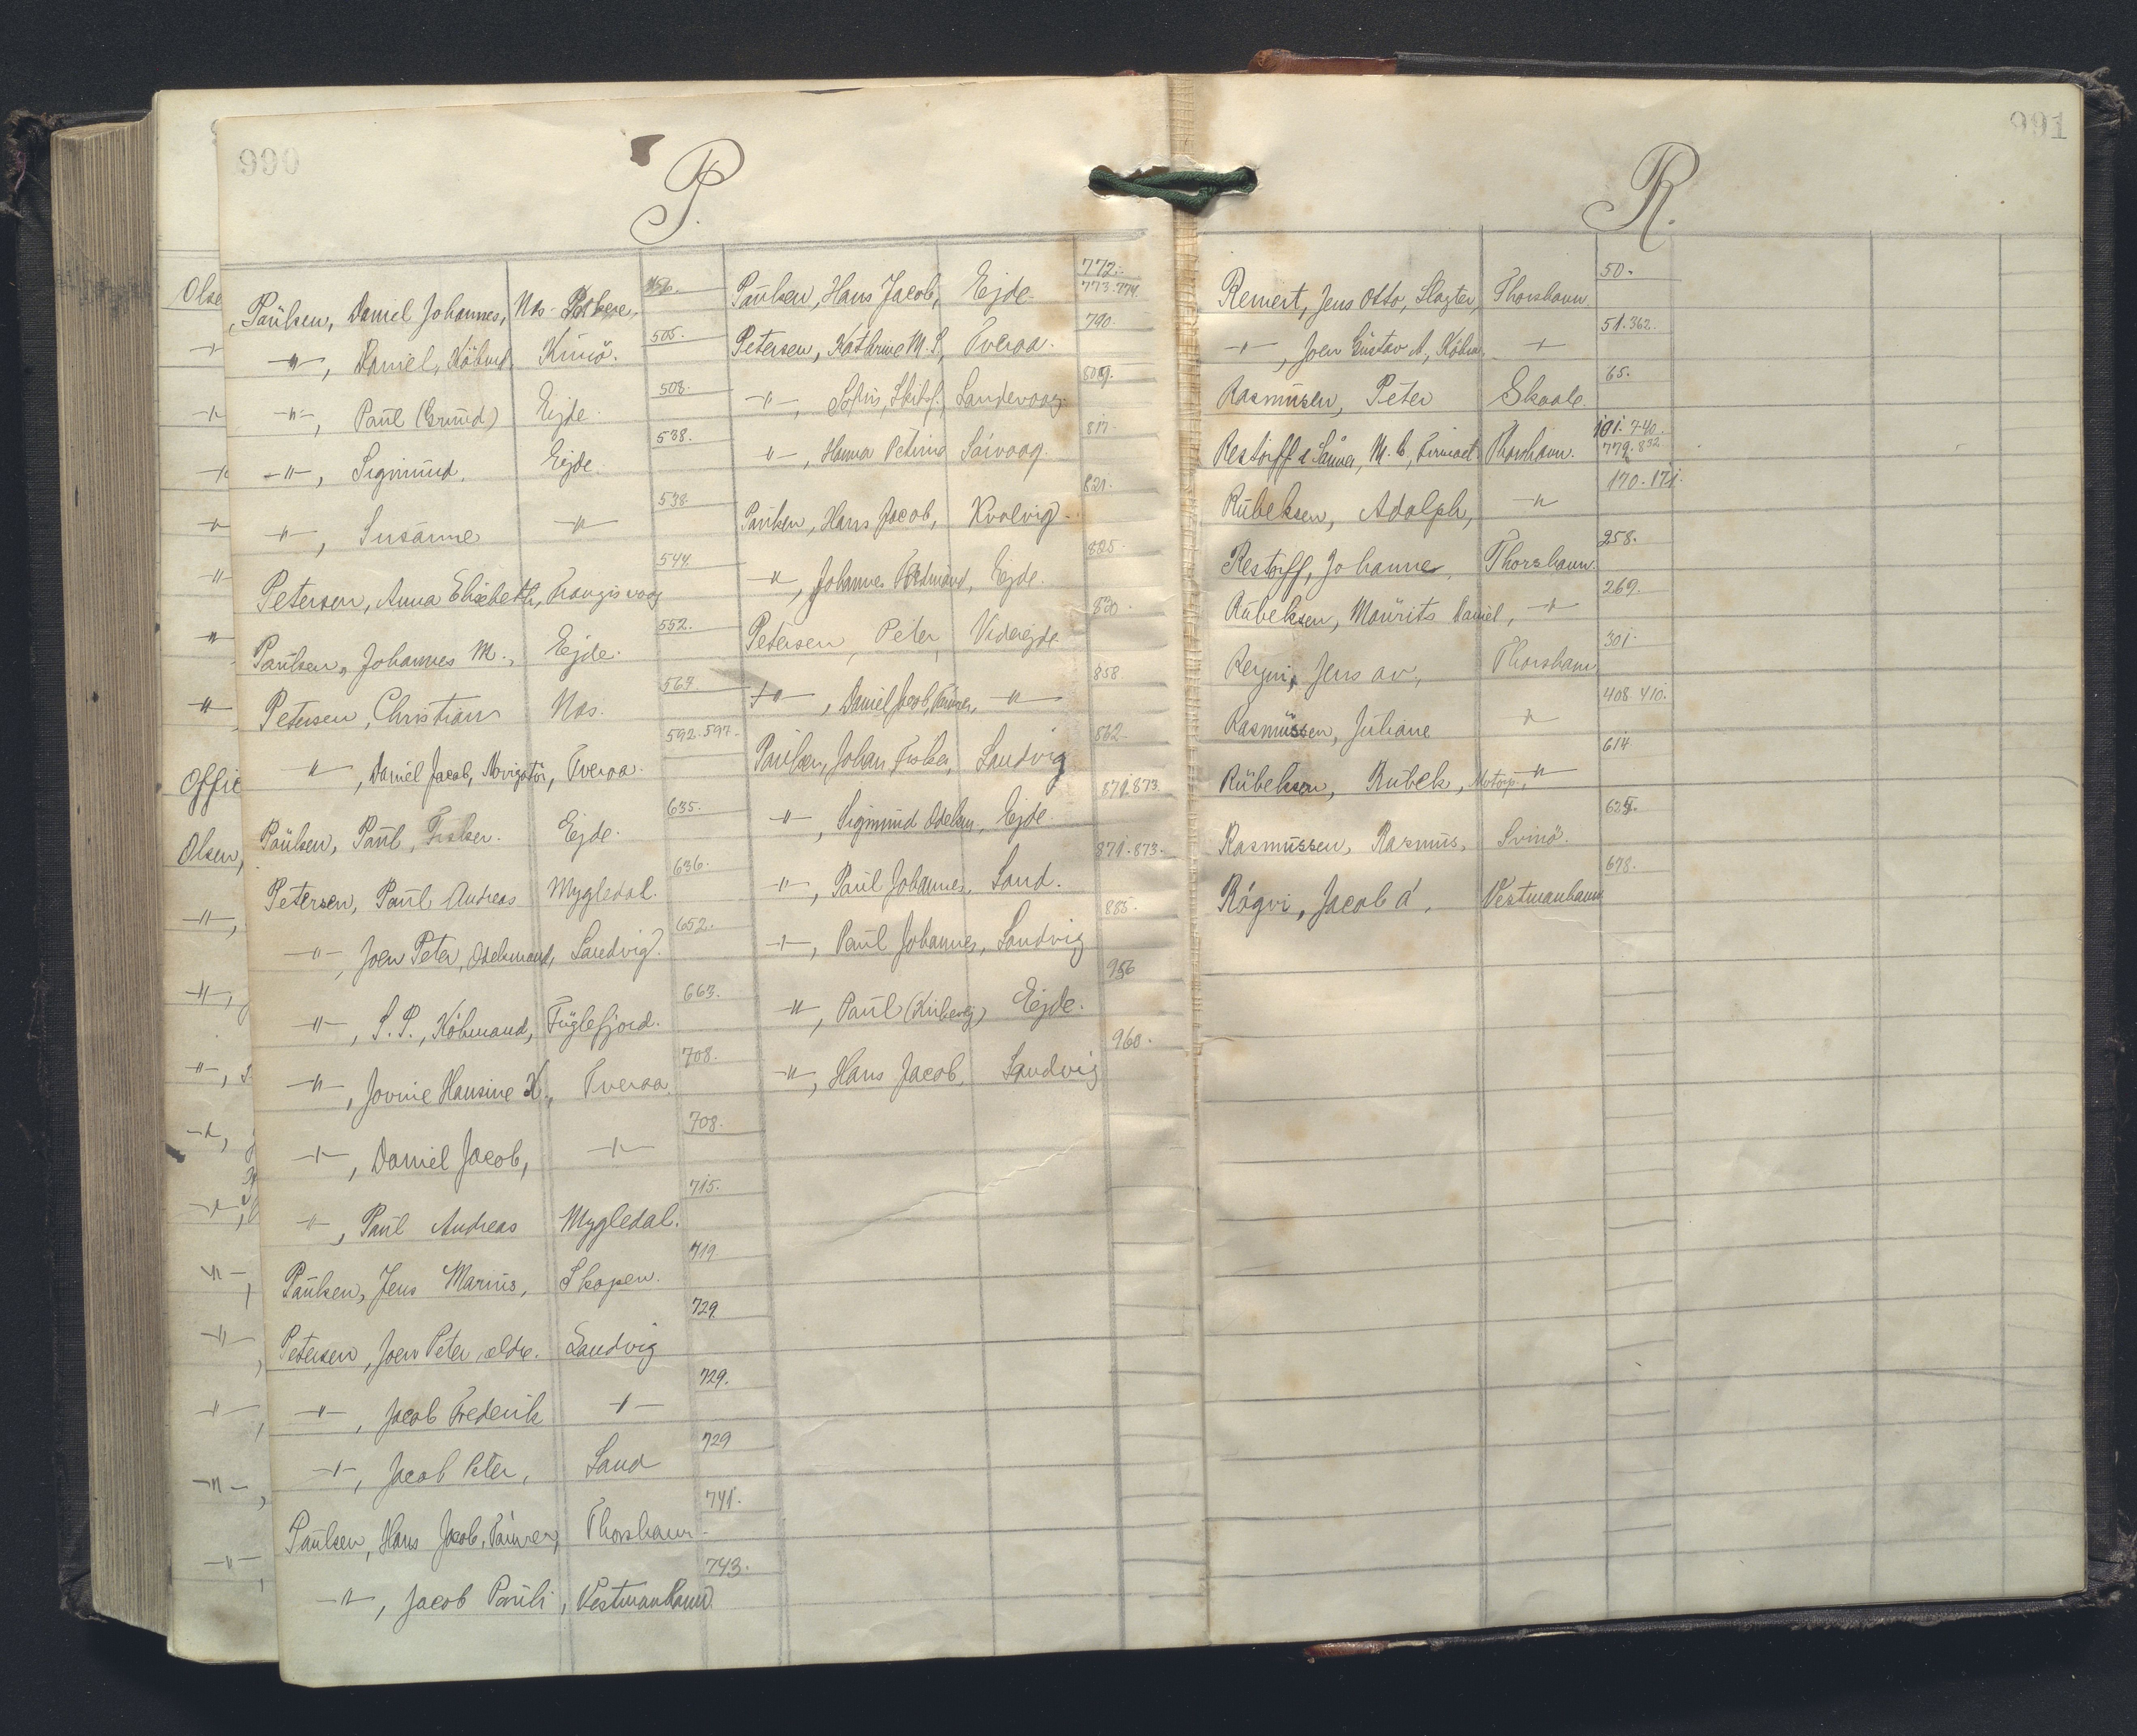 990
P.
Paulsen, Daniel Johannes, Næs 456.
-"-, Daniel, Köbmd. Kunö. 505.
-"-, Paul (Grund) Ejde. 508.
-"-, Sigmund. Ejde. 538.
-"-, Susanne -"- 538
Petersen, Anna Elisabeth, Trangisvaag 544.
Paulsen, Johannes M., Ejde. 552.
Petersen, Christian Næs. 567.
-"-, Daniel Jacob, Navigatör, Tveraa. 592.597.
Paulsen, Paul, Fisker. Ejde. 635.
Petersen, Paul Andreas Mygledal. 636.
-"-, Joen Peter, Odelsmand, Sandvig. 652.
-"-, P.P., Köbmand, Fuglefjord. 663.
-"-, Jovine Hansine K., Tveraa. 708.
-"-, Daniel Jacob, -"- 708.
-"-, Paul Andreas Mygledal. 715.
Paulsen, Jens Marius, Skopen. 719.
Petersen, Joen Peter, ældre. Sandvig 729.
-"-, Jacob Frederik -"- 729.
-"-, Jacob Peter, Sand 729
Paulsen, Hans Jacob, Tömrer, Thorshavn. 741.
-"-, Jacob Pauli, Vestmanhavn 743.
Paulsen, Hans Jacob, Ejde. 772. 773.774.
Petersen, Kathrine M. S, Tveraa. 790.
-"-, Sofus, Skibsf., Sandevaag.
-"-, Hanna Petrina Sörvaag. 817.
Paulsen, Hans Jacob, Kvalvig. 821.
-"-, Johannes Ejde. 825.
Petersen, Peter, Viderejde 830.
-"-, Daniel Jacob, Tömrer, -"- 858.
Paulsen, Johan Fisker, Sandvig 862
-"-, Sigmund Odelsm., Ejde. 871.873.
-"-, Paul Johannes, Sand. 871.873.
-"-, Paul Johannes, Sandvig 885.
-"-, Paul (Kirberg) Ejde. 956
-"-, Hans Jacob, Sandvig 960.
991
R.
Reinert, Jens Otto, Slagter, Thorshavn 50.
-"-, Joen Gustav A., Köbm. -"- 51.362.
Rasmussen, Peter Skaale. 65.
Restorff & Sönner, M. C, Firmaet Thorshavn. 101.740. 779.832
Rubeksen, Adolph, -"- 170.171.
Restorff, Johanne, Thorshavn. 258.
Rubeksen, Mourits Daniel, -"- 269.
Regni, Jens av, Thorshavn 301.
Rasmussen, Juliane -"- 408.410.
Rubeksen, Rubek, Motorp., -"- 614
Rasmussen, Rasmus, Svinö.
Rógvi, Jacob á, Vestmanhavn 678.
Olse
Offic
Olsen,